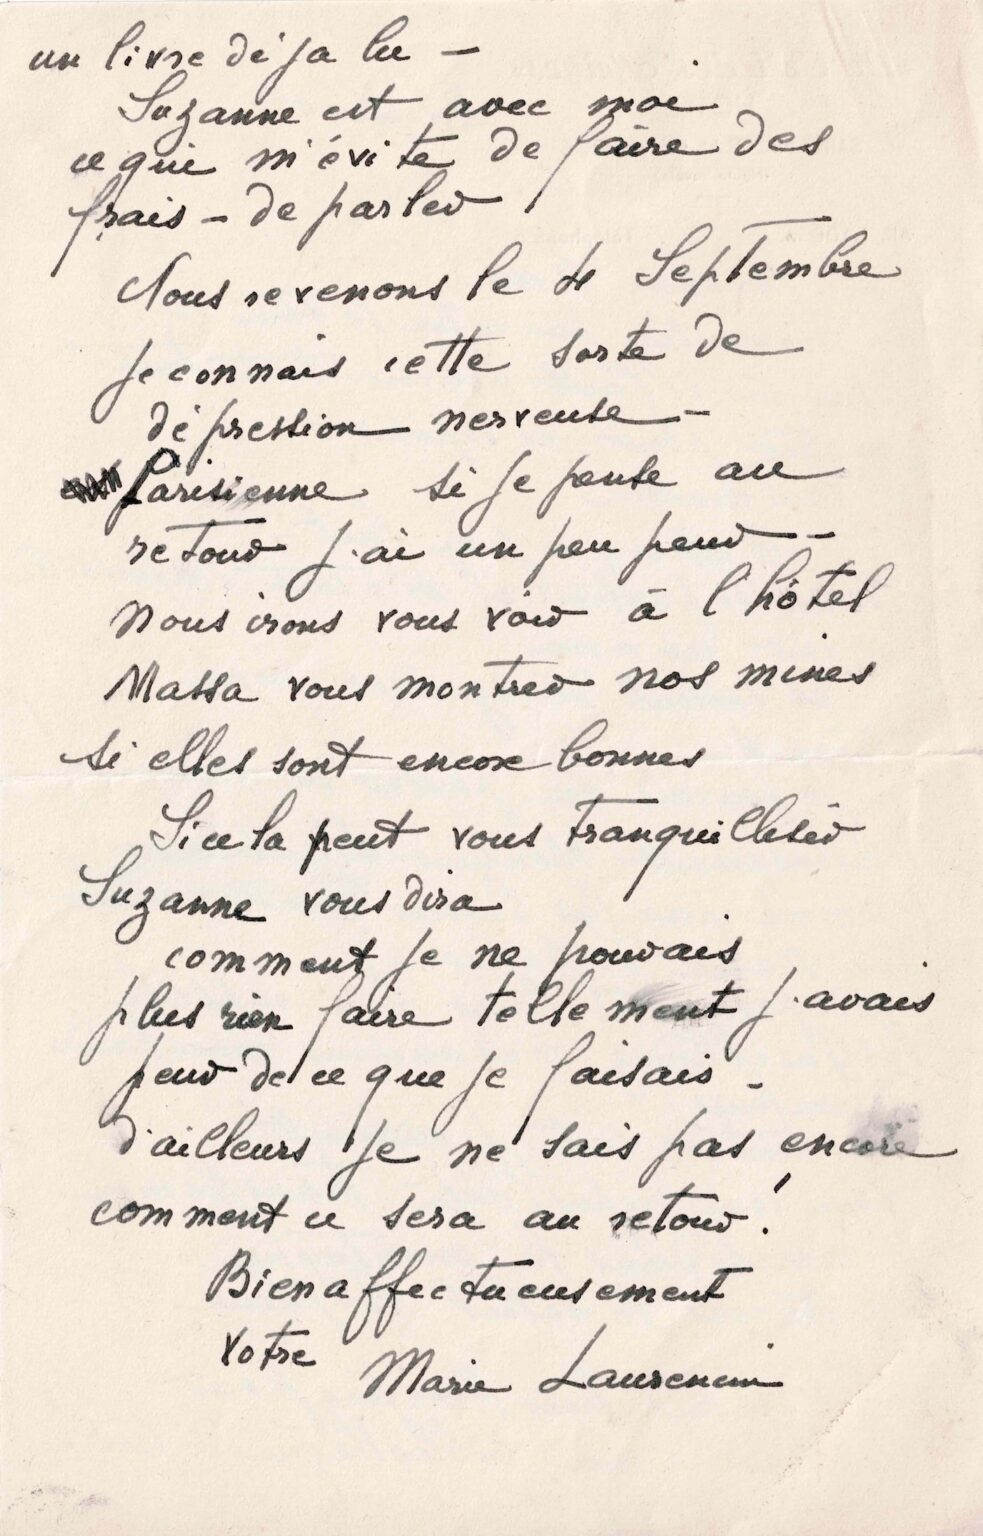 un livre déja lu —
Suzanne est avec moi
ce qui m'évite de faire des
frais - de parler
Nous revenons le 4 Septembre
je connais cette sorte de
dépression nerveuse -
Parisienne si je pense au
retour j'ai un peu peur -
nous irons vous voir à l'hôtel
Massa vous montrer nos mines
si elles sont encore bonnes
Si cela peut vous tranquilliser
Suzanne vous dira
comment je ne pouvais
plus rien faire tellement j'avais
peur de ce que je faisais -
d'ailleurs je ne sais pas encore
comment ce sera au retour !
Bien affectueusement
votre Marie Laurencin